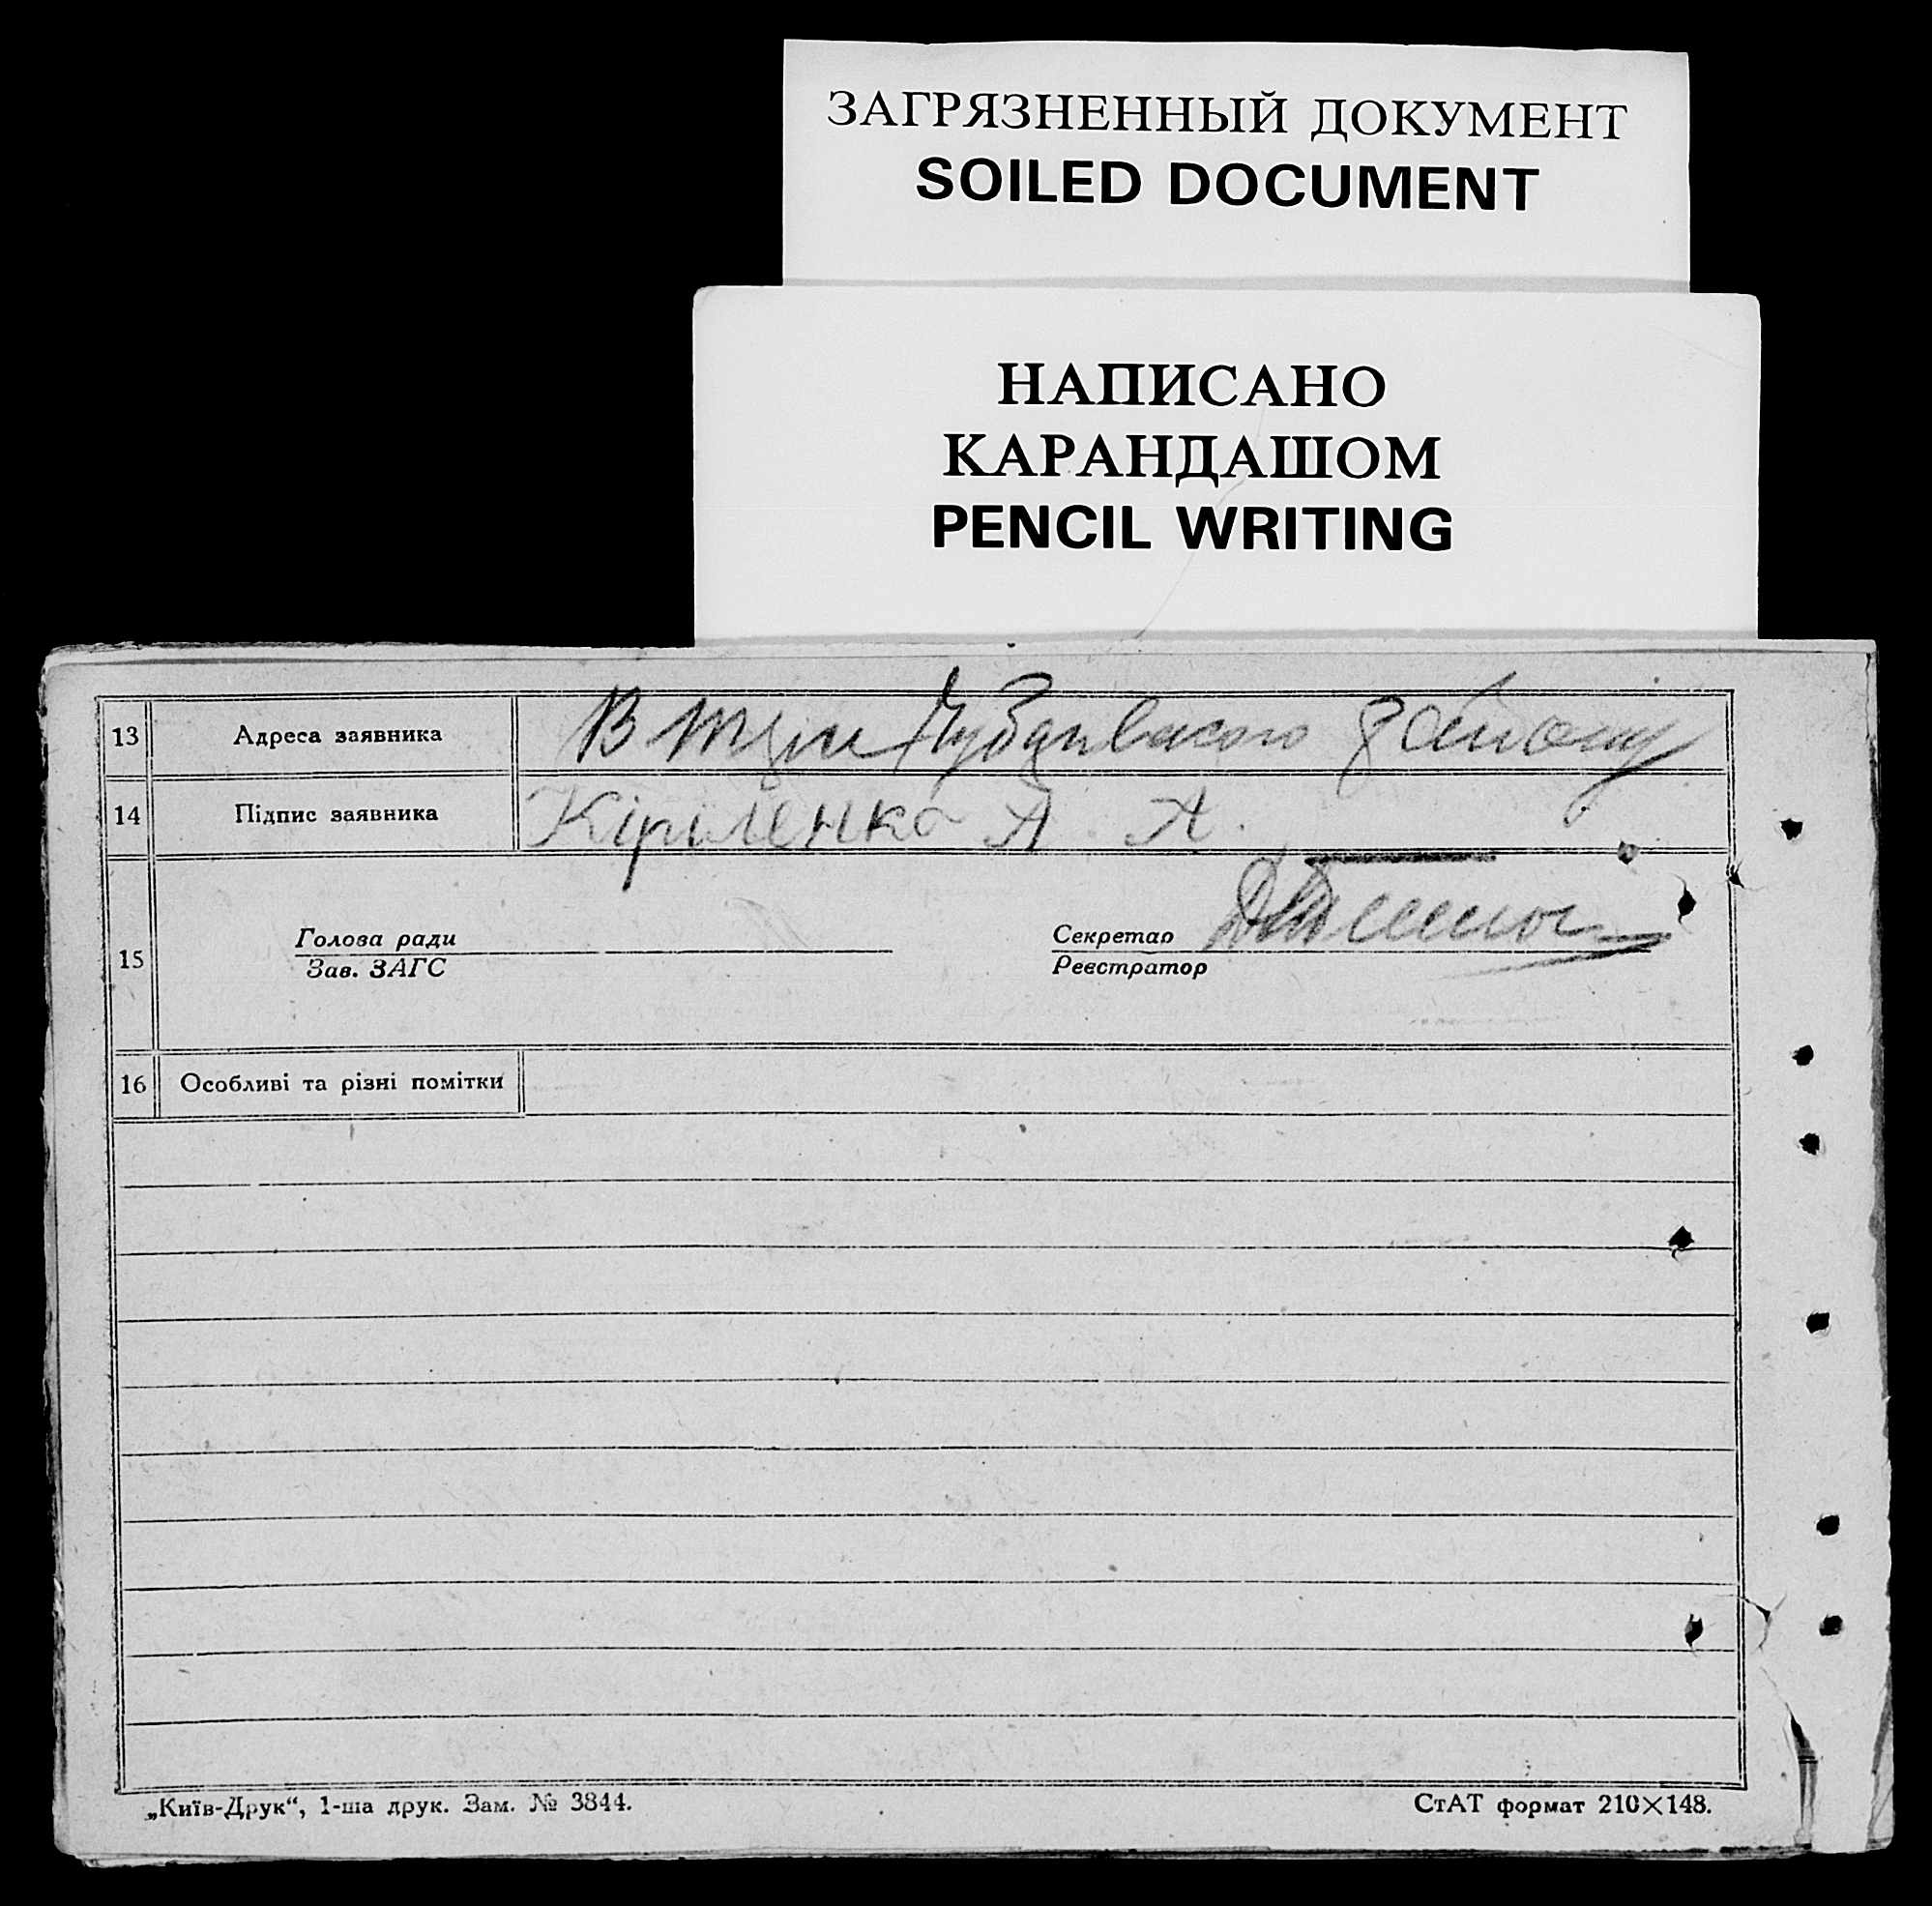 ЗАГРЯЗНЕННЫЙ ДОКУМЕНТ
SOILED DOCUMENT
НАПИСАНО
КАРАНДАШОМ
PENCIL WRITING
13 Адреса заявника В району
14 Підпис заявника Кіріленко А. А.
15 Голова ради Секретар
Зав. ЗАГС Реєстратор
16 Особливі та різні помітки
„Київ-Друк“, 1-ша друк. Зам. № 3844. СтАТ формат 210×148.